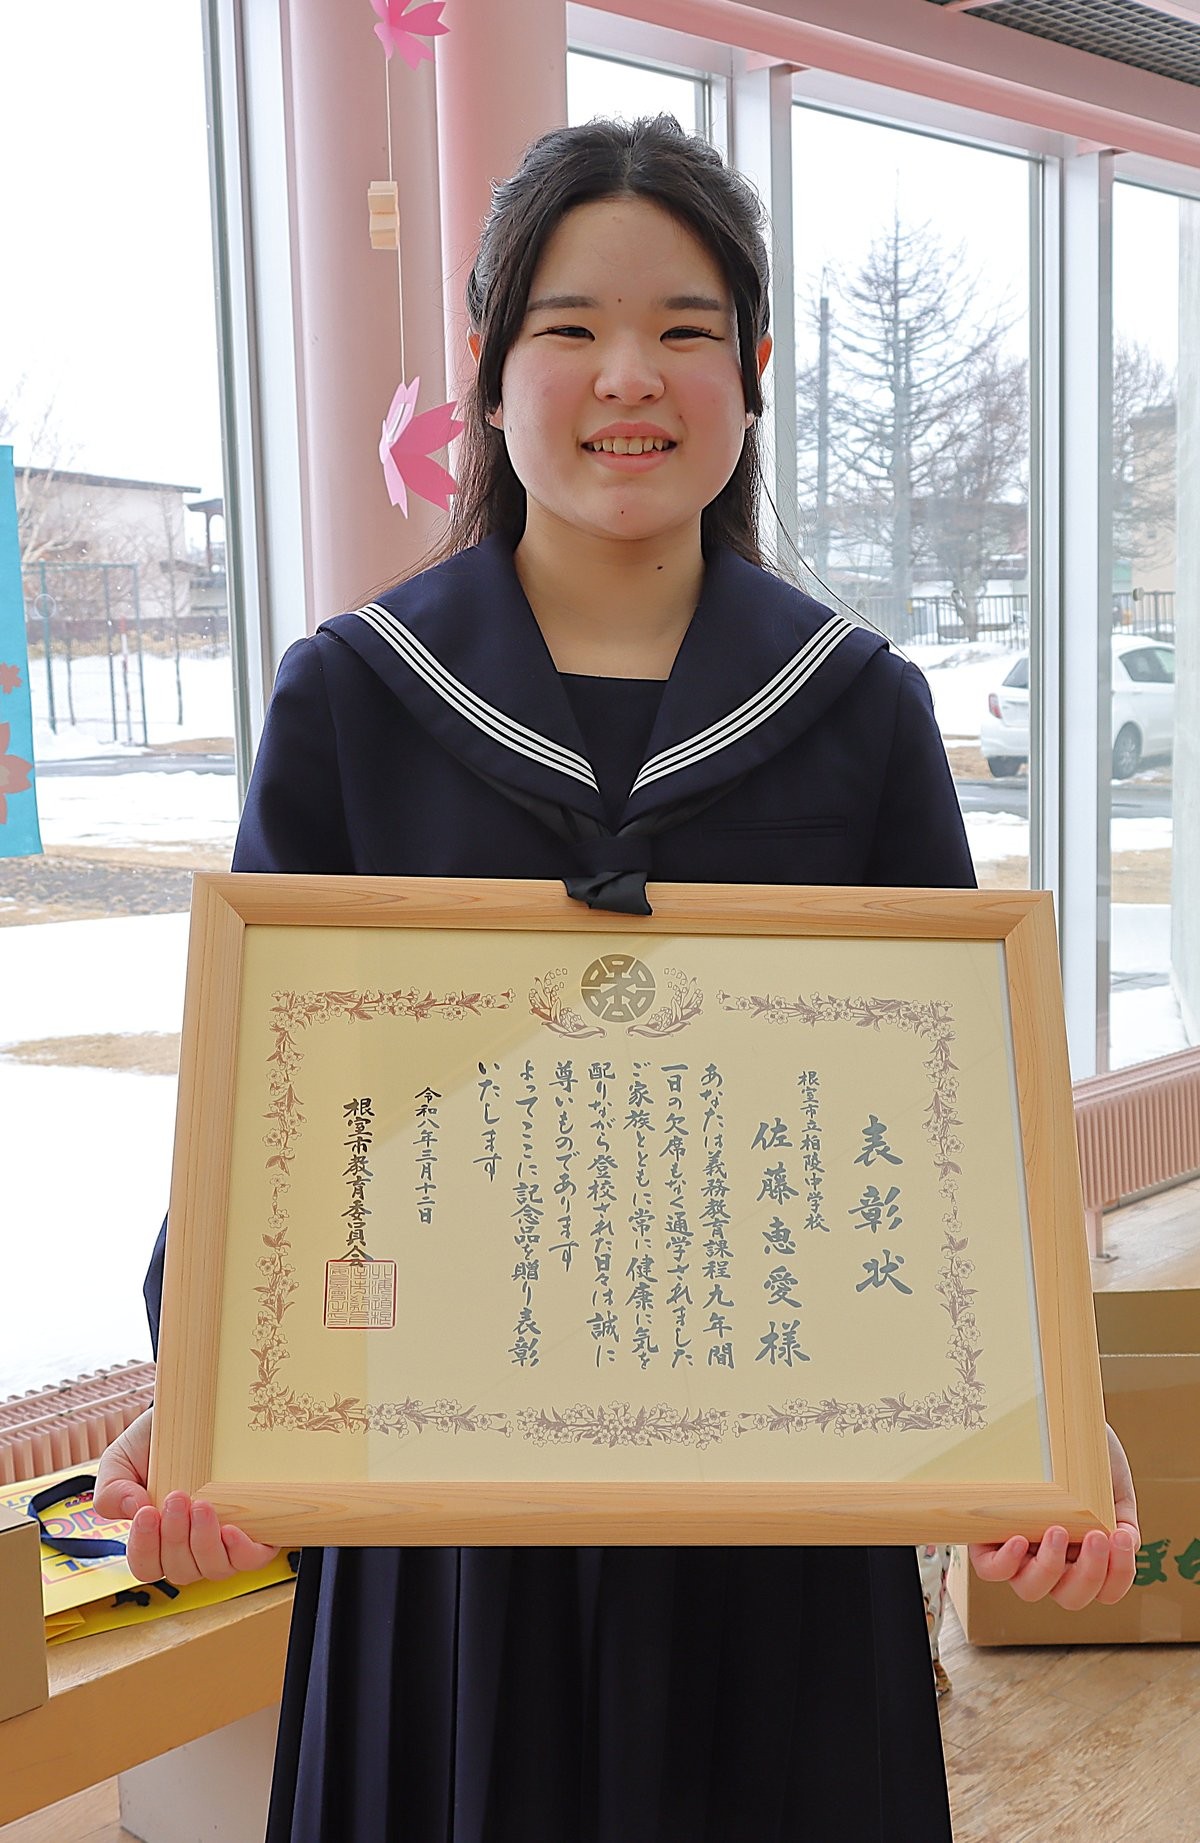 表彰状
根室市立柏陵中学校
佐藤恵愛様
あなたは義務教育課程九年間
一日の欠席もなく通学されました
ご家族とともに常に健康に気を
配りながら登校された日々は誠に
尊いものであります
よってここに記念品を贈り表彰
いたします
令和八年三月十二日
根室市教育委員会